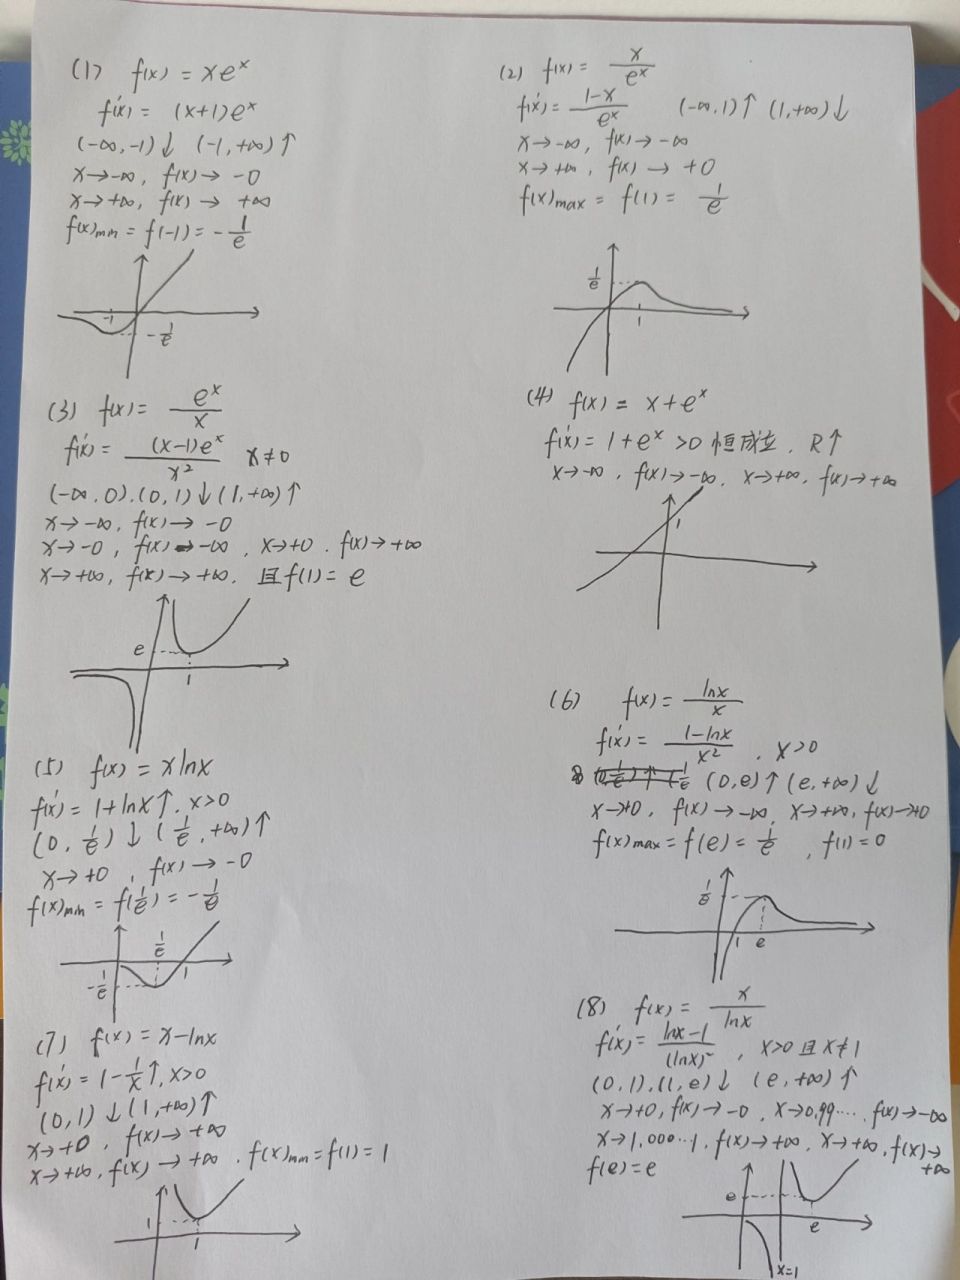 (1) f(x) = xe^x
f'(x) = (x+1)e^x
(-∞,-1)↓ (-1,+∞)↑
x→-∞, f(x)→ -0
x→+∞, f(x)→ +∞
f(x)min = f(-1) = -1/e
-1
-1/e
(2) f(x) = x/e^x
f'(x) = (1-x)/e^x (-∞,1)↑ (1,+∞)↓
x→-∞, f(x)→-∞
x→+∞, f(x)→ +0
f(x)max = f(1) = 1/e
1/e
1
(3) f(x) = e^x/x
f'(x) = (x-1)e^x/x² x≠0
(-∞,0),(0,1)↓(1,+∞)↑
x→-∞, f(x)→ -0
x→-0, f(x)→-∞, x→+0, f(x)→+∞
x→+∞, f(x)→+∞, 且f(1)= e
e
1
(4) f(x) = x+e^x
f'(x) = 1+e^x >0 恒成立, R↑
x→-∞, f(x)→-∞, x→+∞, f(x)→+∞
1
(5) f(x) = xlnx
f'(x) = 1+lnx↑, x>0
(0, 1/e)↓ (1/e, +∞)↑
x→+0, f(x)→-0
f(x)min = f(1/e) = -1/e
1/e
-1/e
1
(6) f(x) = lnx/x
f'(x) = (1-lnx)/x², x>0
(0,e)↑(e,+∞)↓
x→+0, f(x)→-∞, x→+∞, f(x)→+0
f(x)max = f(e) = 1/e, f(1)=0
1/e
1 e
(7) f(x) = x-lnx
f'(x) = 1-1/x↑, x>0
(0,1)↓(1,+∞)↑
x→+0, f(x)→+∞
x→+∞, f(x)→+∞, f(x)min=f(1)=1
1
1
(8) f(x) = x/lnx
f'(x) = (lnx-1)/(lnx)², x>0且x≠1
(0,1),(1,e)↓ (e,+∞)↑
x→+0, f(x)→-0, x→0.99····, f(x)→-∞
x→1.000···1, f(x)→+∞, x→+∞, f(x)→
+∞
f(e)=e
e
e
x=1